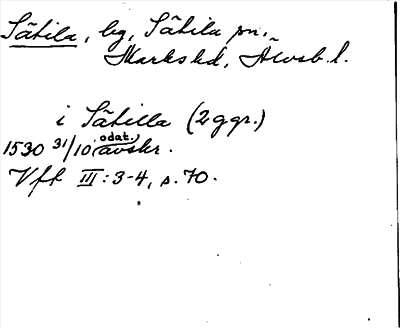 Sätila, by, Sätila sn,
Marks hd, Älvsb. l.
i Sätilla (2 ggr.)
1530 31/10 (odat.) avskr.
Vff III:3-4, s. 70.